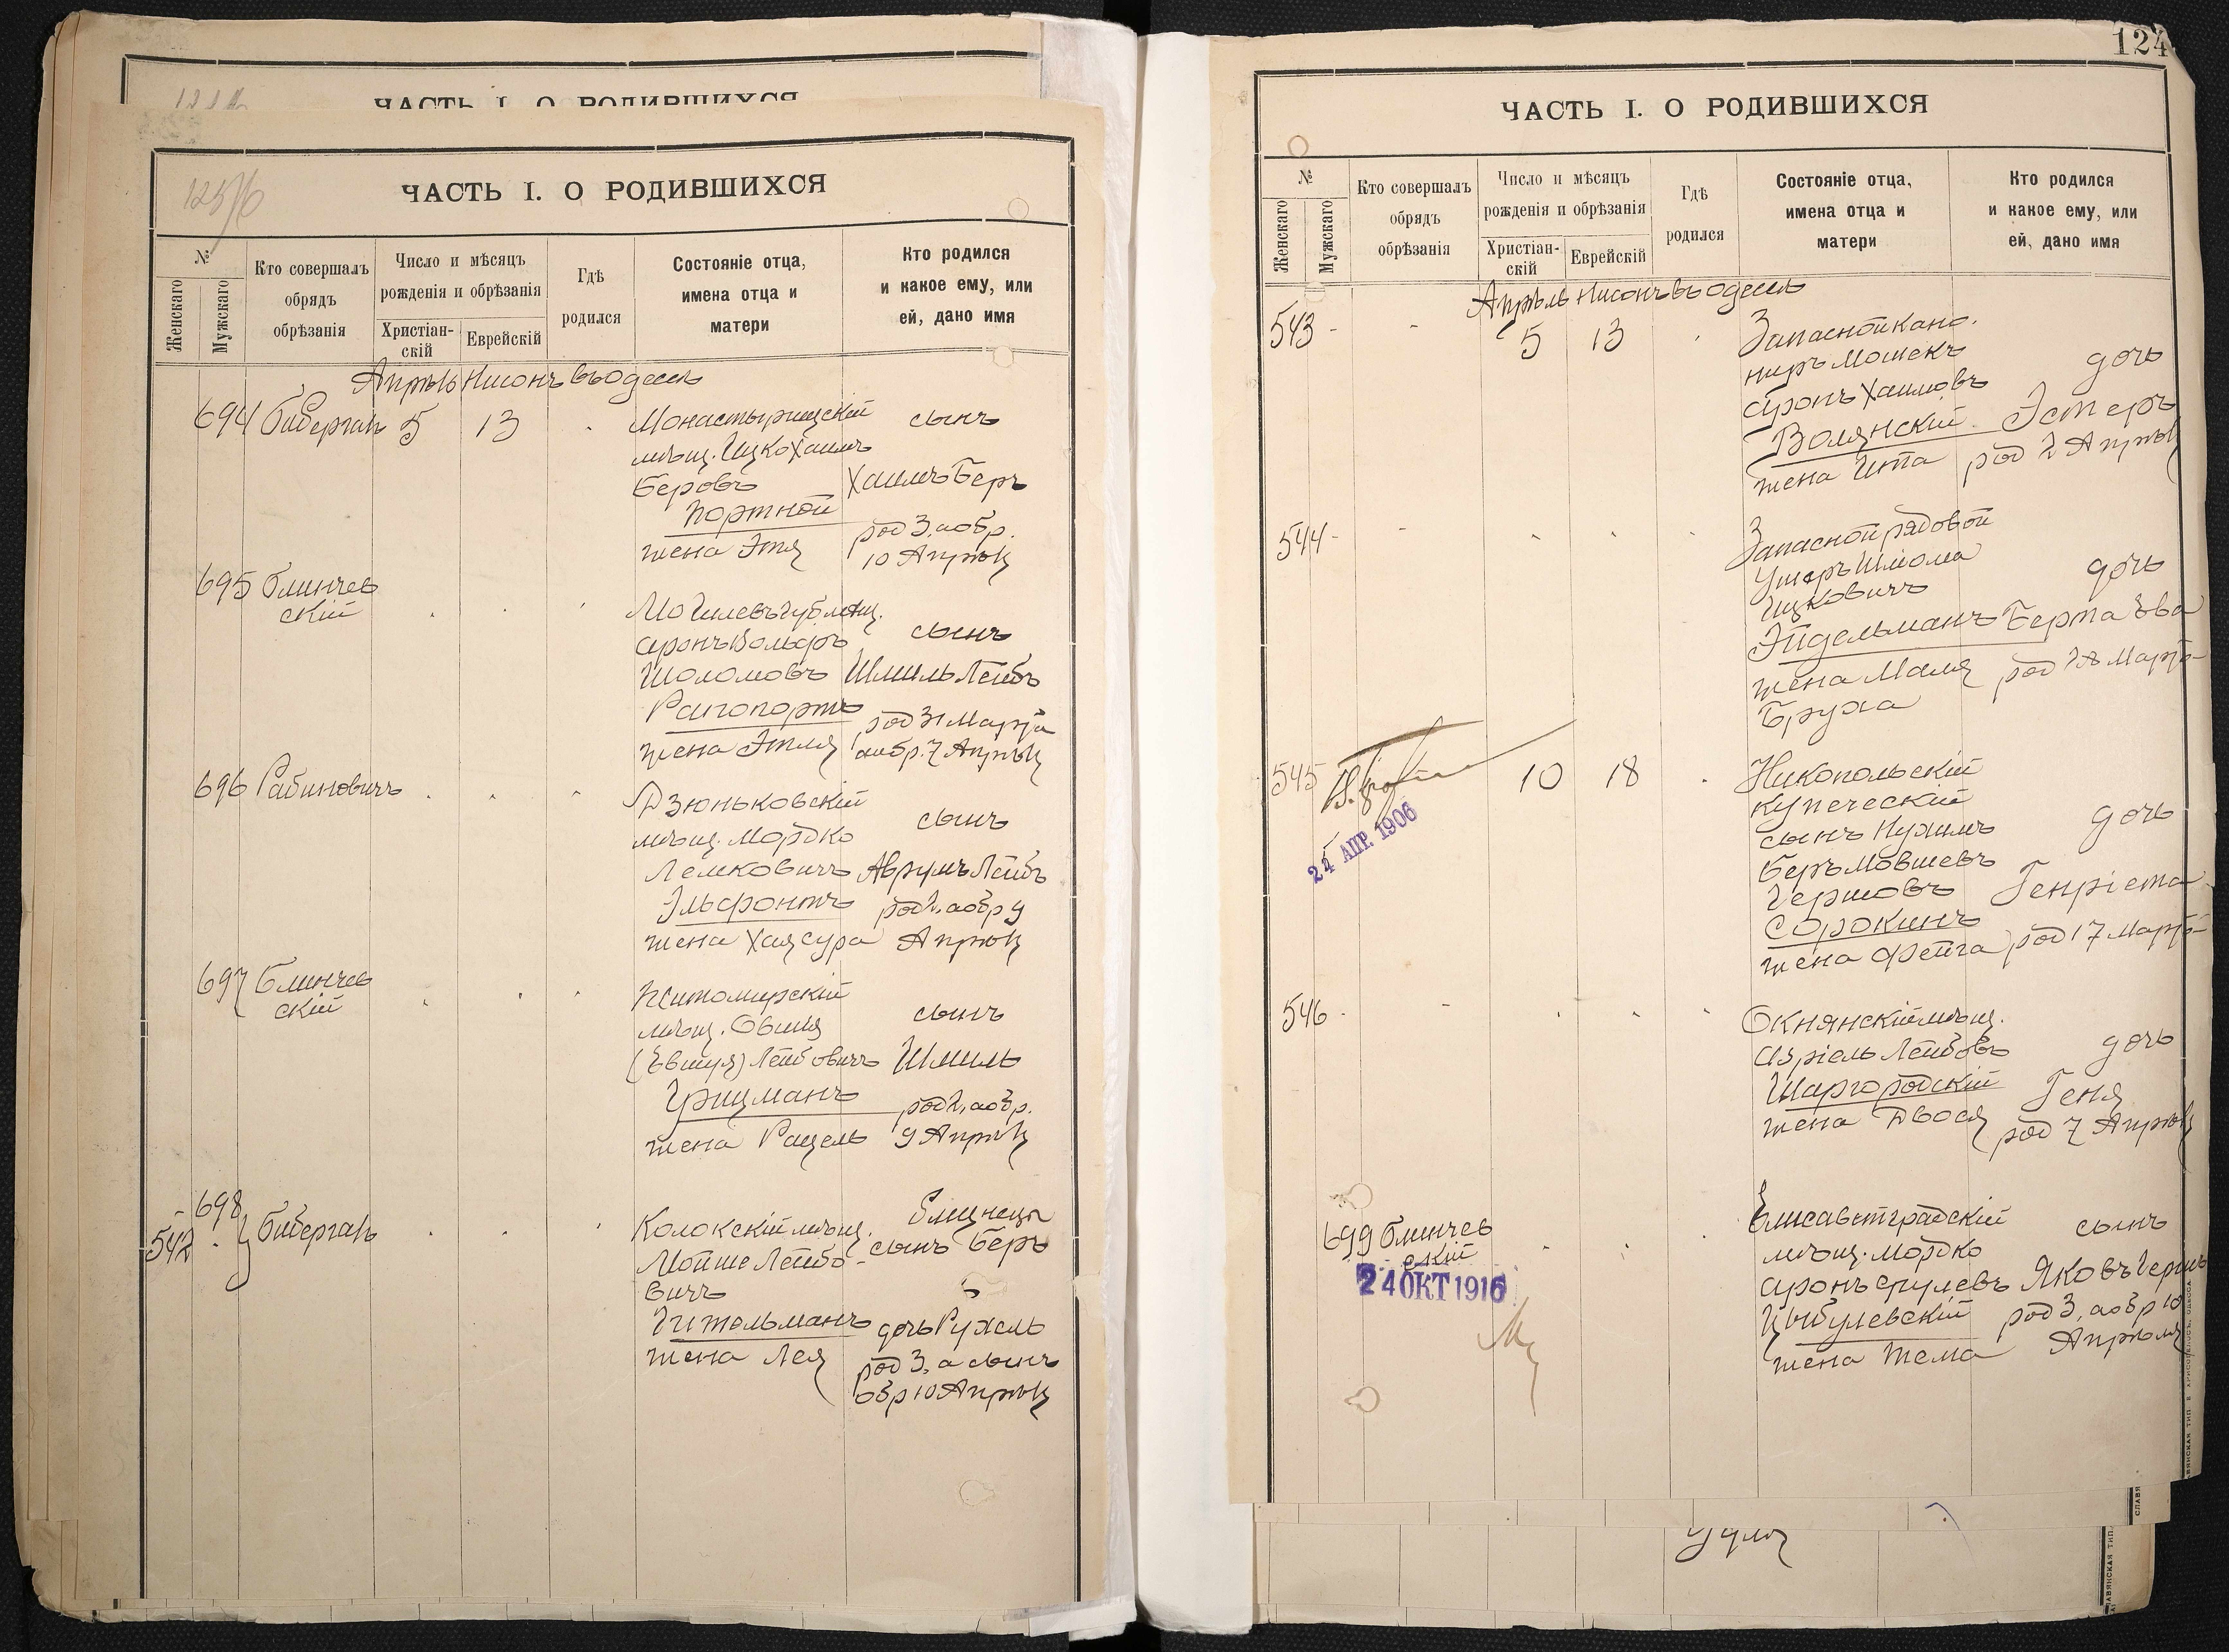 ЧАСТЬ I. О РОДИВШИХСЯ
ЧАСТЬ I. О РОДИВШИХСЯ
№
Женскаго
Мужскаго
Кто совершалъ
обрядъ
обрѣзанія
Число и мѣсяцъ
рожденія и обрѣзанія
Христіан-
скій
Еврейскій
Гдѣ
родился
Состояніе отца,
имена отца и
матери
Кто родился
и какое ему, или
ей, дано имя
Апрѣль Нисонъ въ Одессѣ
694 Бибергалъ 5 13
Монастырищскій
мѣщ. Ицко Хаимъ
Беровъ
Портной
жена Этя
сынъ
Хаимъ Беръ
род 3, а обр.
10 Апрѣля
695 Блинчев
скій
Могилевъ губ мѣщ.
Аронъ Вольфъ
Шоломовъ
Рапопортъ
жена Этля
сынъ
Шмиль Лейбъ
род 31 Марта
а обр. 7 Апрѣля
696 Рабиновичъ
Дзюньковскій
мѣщ. Мордко
Лемковичъ
Эльфонтъ
жена Хая Сура
сынъ
Аврумъ Лейбъ
род 2, а обр 9
Апрѣля
697 Блинчев
скій
Житомирскій
мѣщ. Овшія
(Евшуя) Лейбовичъ
Грицманъ
жена Рацель
сынъ
Шмиль
род 2, а обр.
9 Апрѣля
698
542 Бибергалъ
Колокскій мѣщ.
Мойше Лейбо-
вичъ
Гительманъ
жена Лея
близнецы
сынъ Беръ
дочь Рухель
род 3, а сынъ
обр 10 Апрѣля
124
ЧАСТЬ I. О РОДИВШИХСЯ
№
Женскаго
Мужскаго
Кто совершалъ
обрядъ
обрѣзанія
Число и мѣсяцъ
рожденія и обрѣзанія
Христіан-
скій
Еврейскій
Гдѣ
родился
Состояніе отца,
имена отца и
матери
Кто родился
и какое ему, или
ей, дано имя
Апрѣль Нисонъ въ Одессѣ
543 - - 5 13
Запасной кано-
ниръ Мошекъ
Аронъ Хаимовъ
Волянскій
жена Ита
дочь
Эстеръ
род 2 Апрѣля
544 - -
Запасной рядовой
Ушеръ Шлома
Ицковичъ
Эйдельманъ
жена Маля
Бруха
дочь
Берта Ева
род 28 Марта
545 10 18
24 АПР. 1906
Никопольскій
купеческій
сынъ Нухимъ
Беръ Мовшевъ
Гершовъ
Сорокинъ
жена Фейга
дочь
Генріета
род 17 Марта
546
Окнянскій мѣщ.
Азріель Лейбовъ
Шаргородскій
жена Двося
дочь
Геня
род 7 Апрѣля
699 Блинчев
скій
24 ОКТ 1916
Елисаветградскій
мѣщ. Мордко
Аронъ Срулевъ
Цыбулевскій
жена Тема
сынъ
Яковъ Герш
род 3, а обр 10
Апрѣля